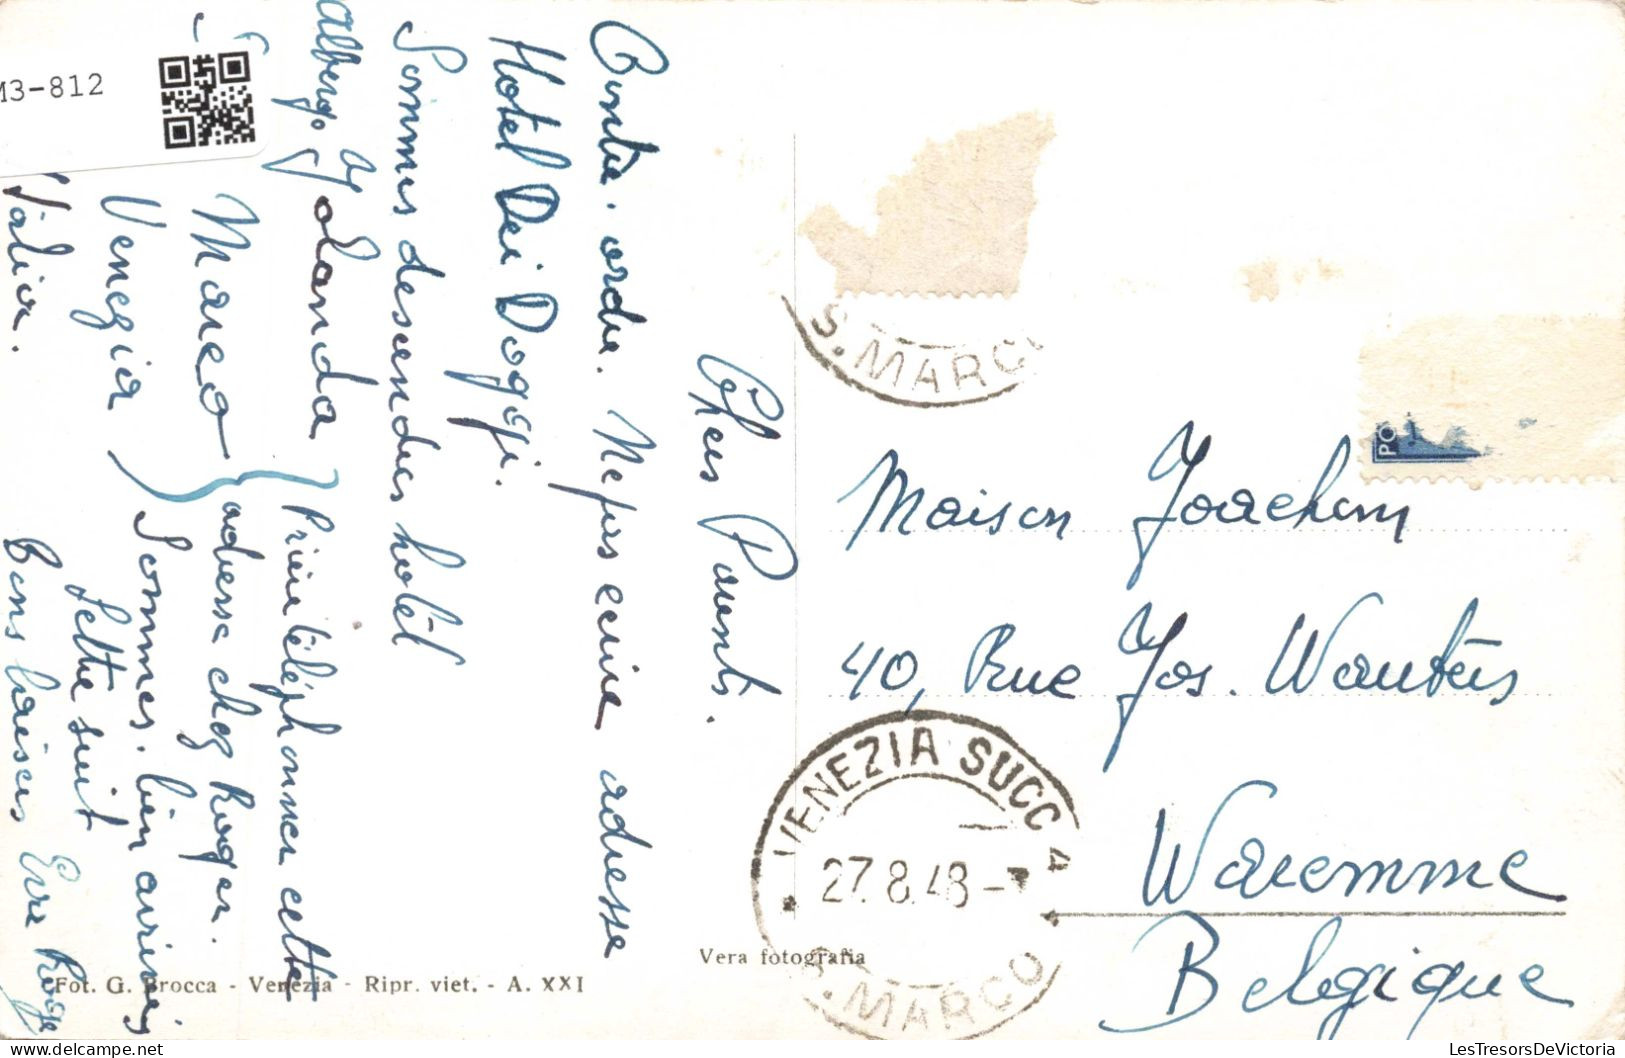 M3-812
Chers Parents.
Contre. ordre. Ne pas écrire adresse
Hotel Dei Dogi.
Sommes descendus hotel
Albergo
olanda
Marco
Venezia
Prière téléphoner cette
adresse chez Roger.
Sommes. bien arrivés
Lettre suit
Bons baisers Eva Roger
Maison Joachim
40, Rue Jos. Wauters
Waremme
Belgique
S. MARCO
PO
VENEZIA SUCC 4
27.8.48-
S. MARCO
Vera fotografia
Fot. G. Brocca - Venezia - Ripr. viet. - A. XXI
LesTresorsDeVictoria.com